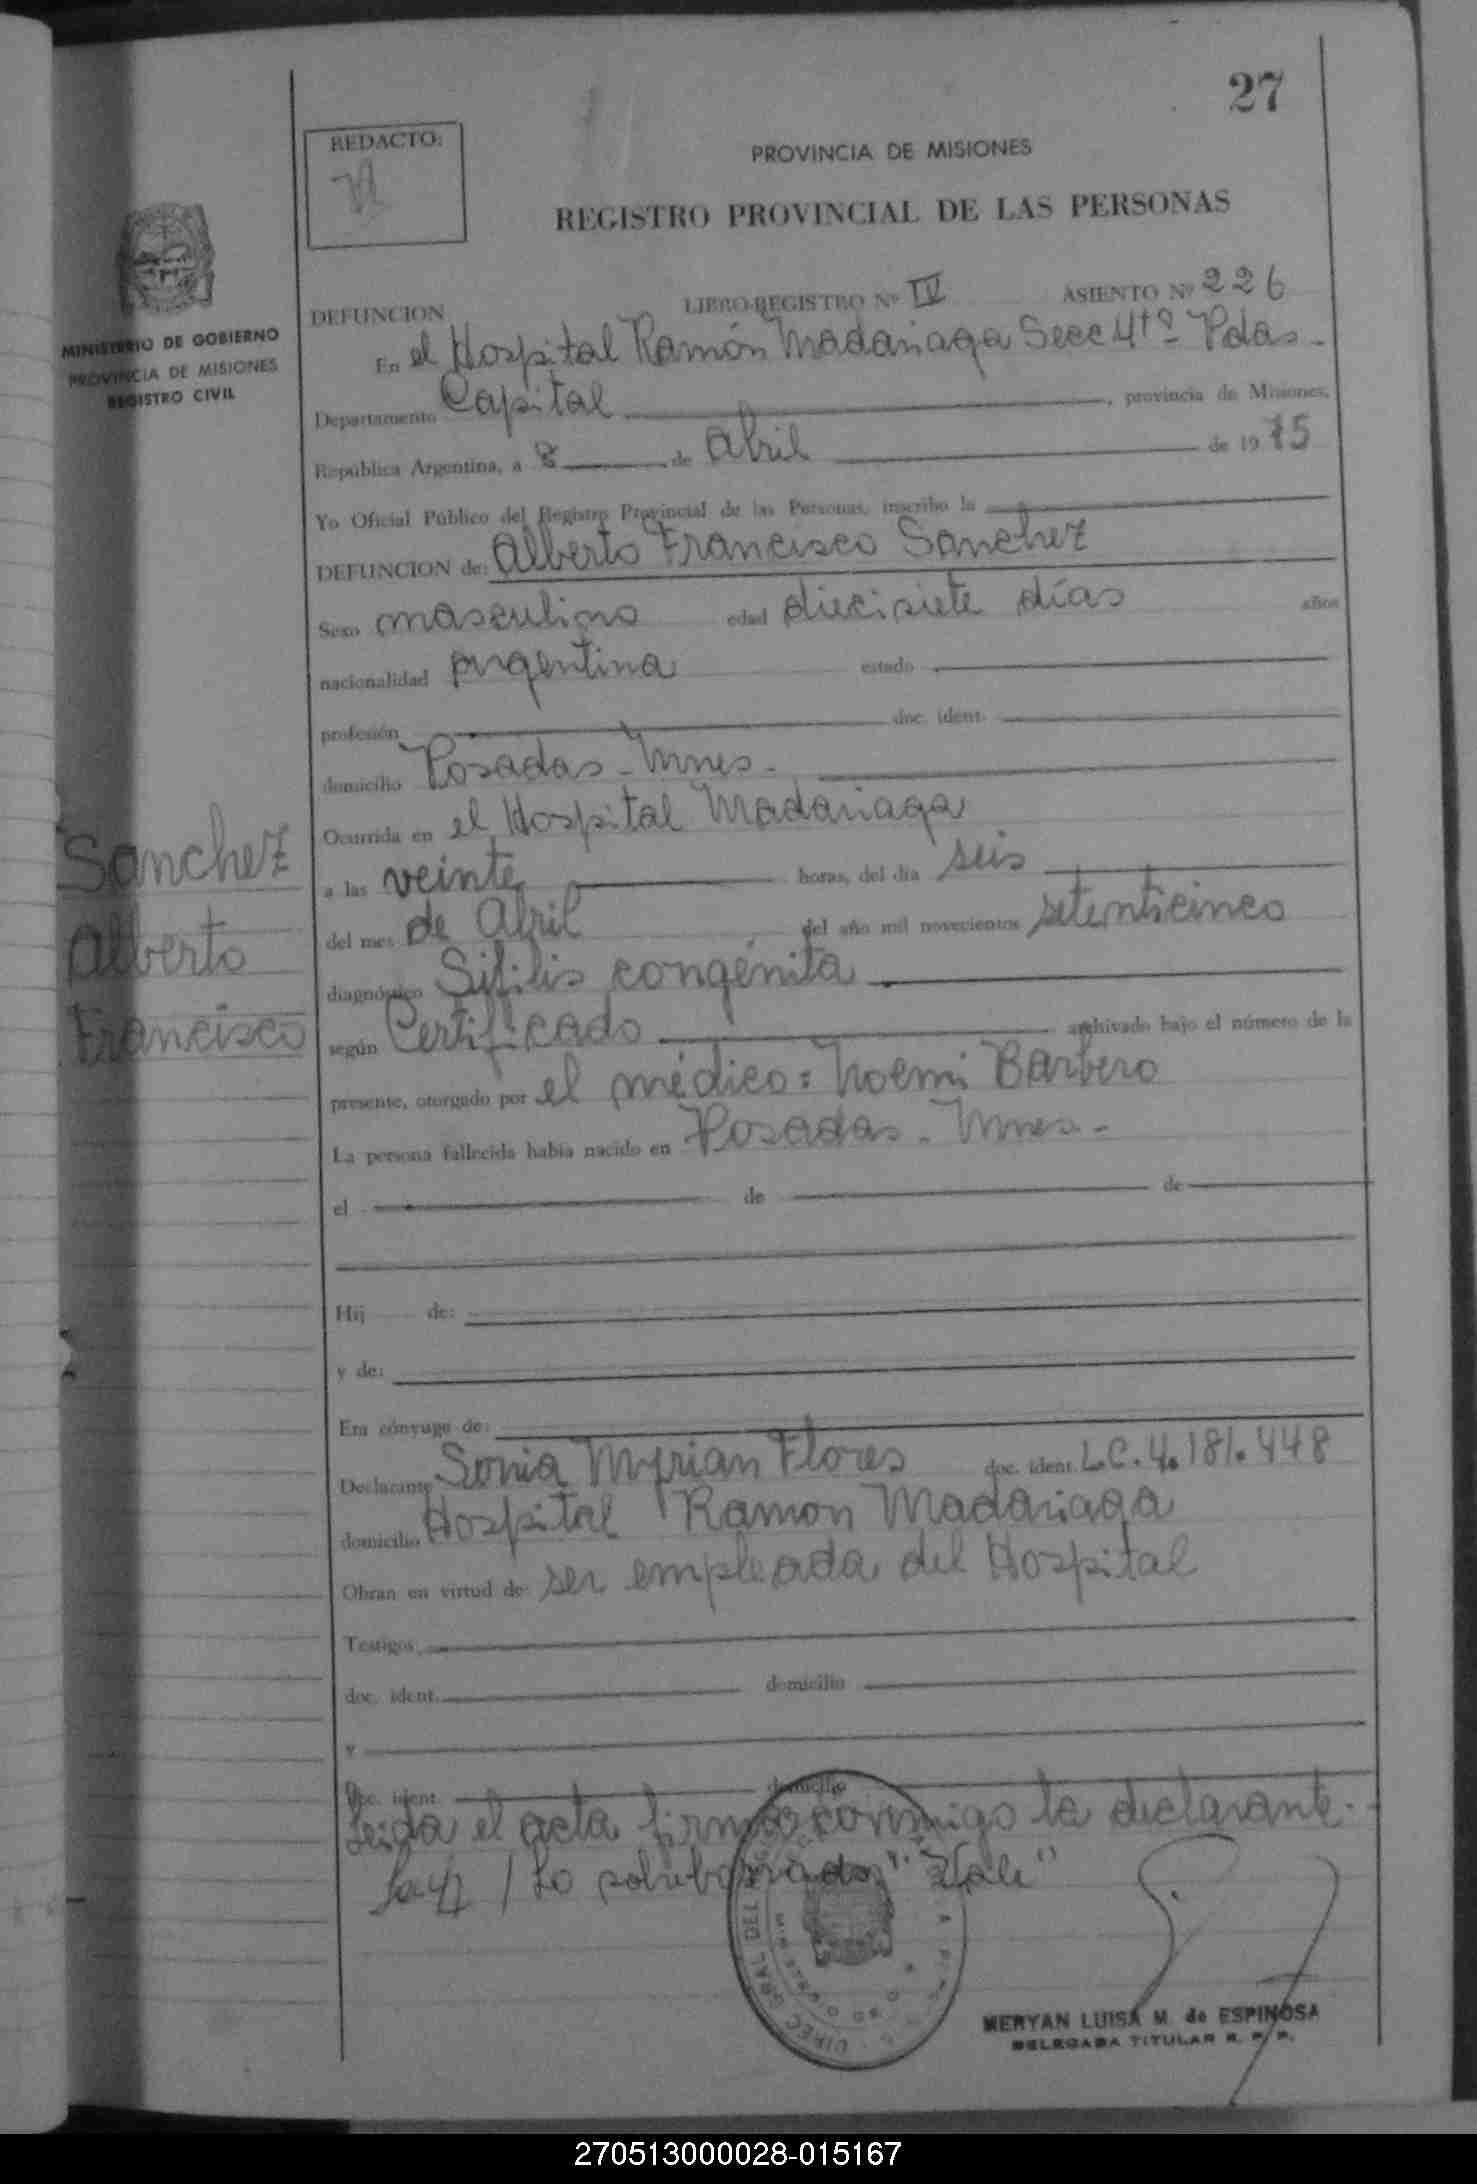 27
REDACTO:
PROVINCIA DE MISIONES
REGISTRO PROVINCIAL DE LAS PERSONAS
MINISTERIO DE GOBIERNO
PROVINCIA DE MISIONES
REGISTRO CIVIL
DEFUNCION LIBRO-REGISTRO Nº IV ASIENTO Nº 226
En el Hospital Ramón Madariaga Secc 4tª Pdas -
Departamento Capital, provincia de Misiones,
República Argentina, a 8 de Abril de 1975
Yo Oficial Público del Registro Provincial de las Personas, inscribo la
DEFUNCION de: Alberto Francisco Sanchez
Sexo masculino edad diecisiete días años
nacionalidad argentina estado
profesión doc. ident.
domicilio Posadas - Mnes -
Ocurrida en el Hospital Madariaga
Sanchez
Alberto
Francisco
a las veinte horas, del día seis
del mes de Abril del año mil novecientos setenticinco
diagnóstico Sífilis congénita
según Certificado archivado bajo el número de la
presente, otorgado por el médico: Noemi Barbero
La persona fallecida había nacido en Posadas - Mnes -
el de de
Hij de:
y de:
Era cónyuge de:
Declarante Sonia Myrian Flores doc. ident. L.C. 4.181.448
domicilio Hospital Ramon Madariaga
Obran en virtud de: ser empleada del Hospital
Testigos
doc. ident. domicilio
y
Doc. ident. domicilio
Leida el acta firma conmigo la declarante.-
/ Lo "Vale"
MERYAN LUISA M. de ESPINOSA
DELEGADA TITULAR R. P. P.
270513000028-015167